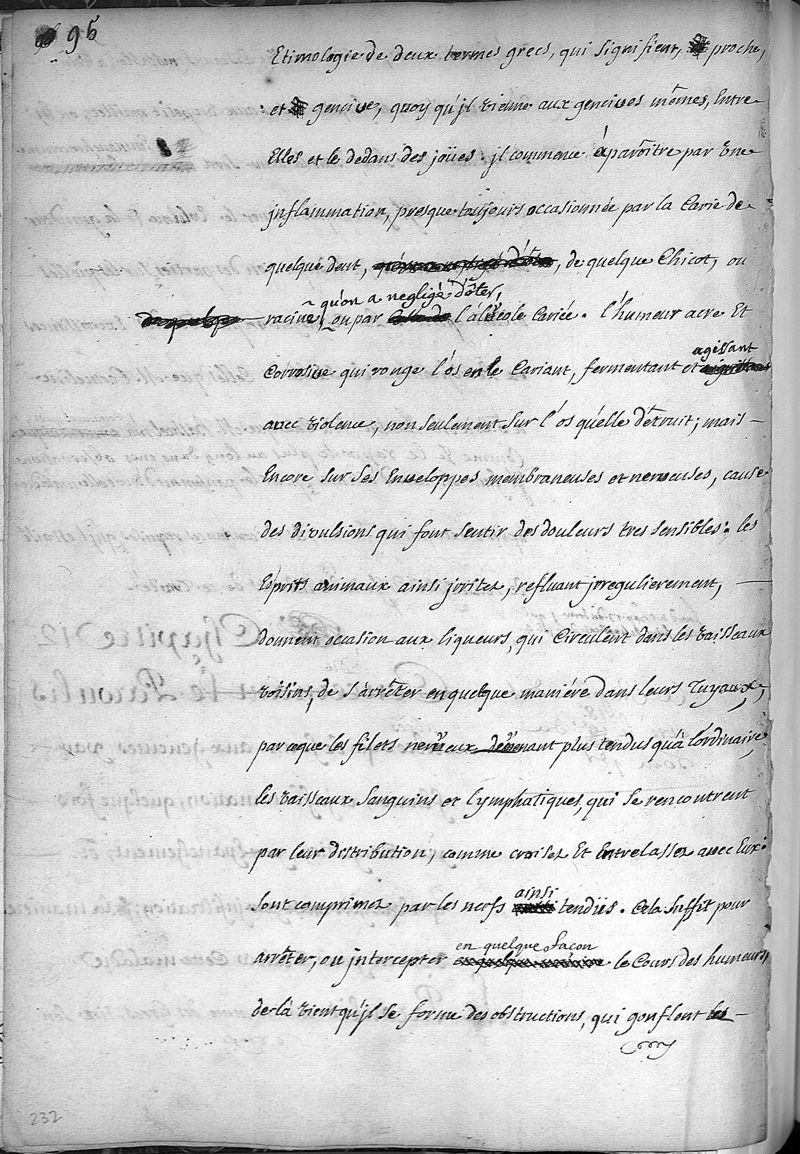 95
Etimologie de deux termes grecs, qui signifient, proche,
et gencive, quoy qu'jl vienne aux gencives mêmes, Entre
Elles et le dedans des joües. jl commence à parôitre par vne
jnflammation, presque toujours occasionnée par la Carie de
quelque dent, de quelque Chicot, ou
qu'on a negligé d'ôter,
racine, ou par l'alveole Cariée. l'humeur acre Et
agissant
Corrosive qui ronge l'os en le Cariant, fermentant et
avec violence, non seulement sur l'os qu'elle détruit; mais
Encore sur ses Enveloppes membraneuses et nerveuses, cause
des divulsions qui font sentir des douleurs tres sensibles: les
Esprits animaux ainsi jrritez, refluant jrregulierement,
donnent occasion aux liqueurs, qui Circulent dans les vaisseaux
voisins, de s'arrêter en quelque maniére dans leurs Tuyaux;
parceque les filets nerveux devenant plus tendus qu'à l'ordinaire,
les vaisseaux sanguins et lymphatiques, qui se rencontrent
par leur distribution, comme croisez Et Entrelassez avec Eux
ainsi
sont comprimez par les nerfs tendus. Cela suffit pour
en quelque facon
arrêter, ou jntercepter le Cours des humeurs
de là vient qu'jl se forme des obstructions, qui gonflent
232